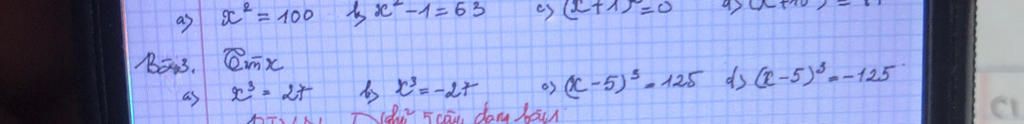 a) x² = 100 b) x² - 1 = 63 c) (x+1) = 0
Bài 3. Tìm x
a) x³ = 27 b) x³ = -27 c) (x-5)³ = 125 d) (x-5)³ = -125
5 câu dạng bài 1